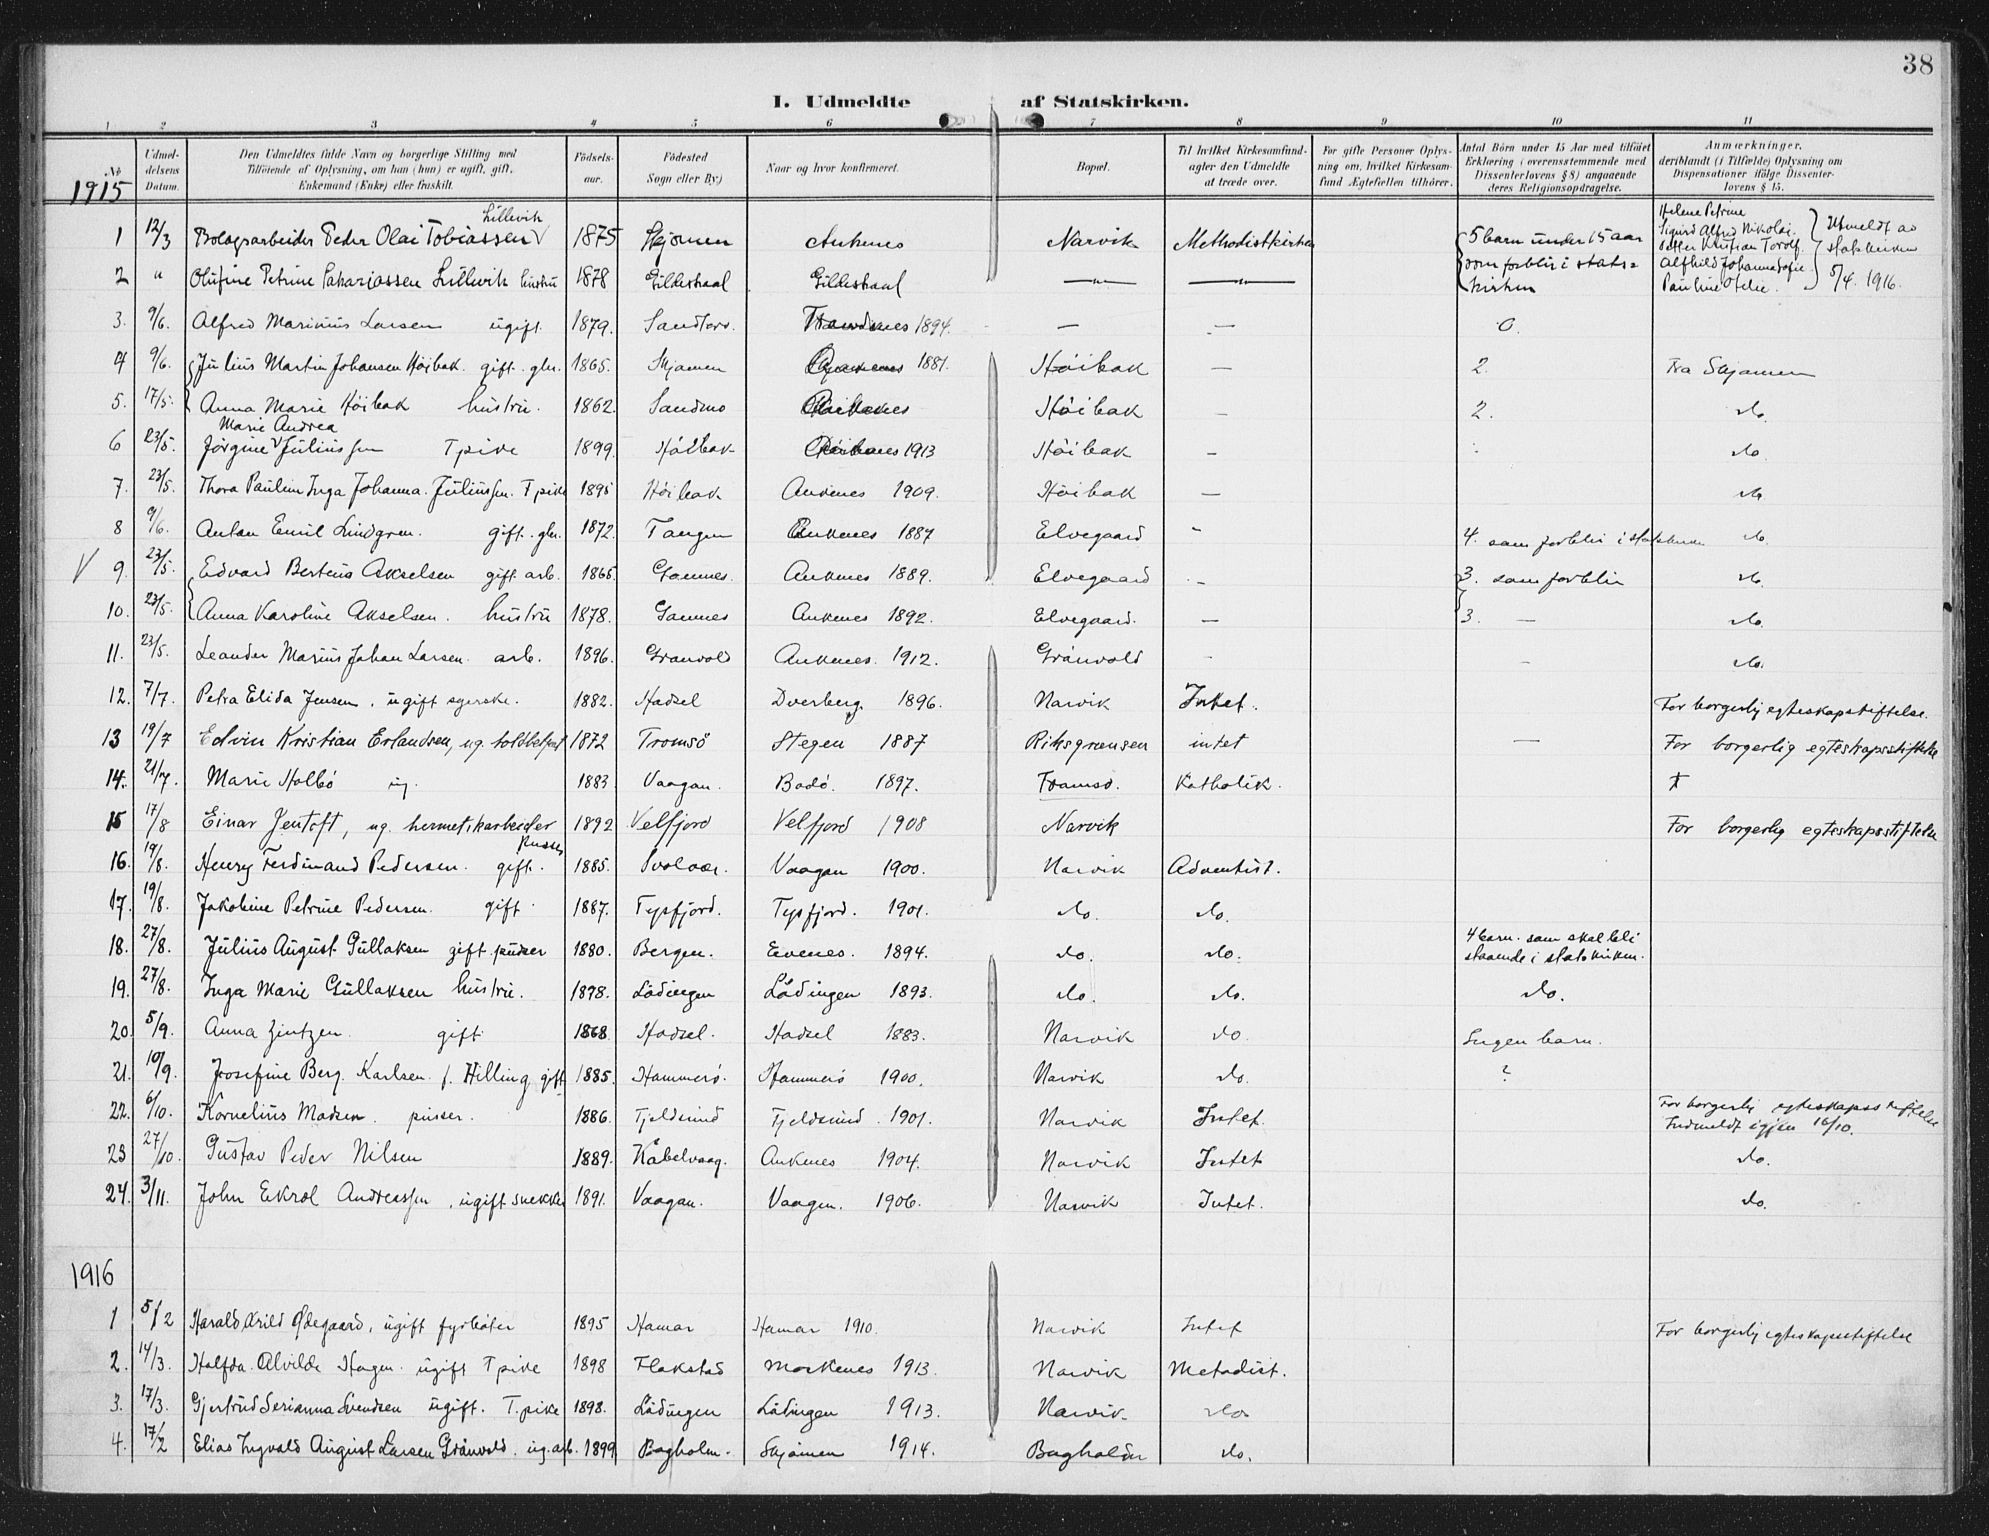 38
I. Udmeldte af Statskirken.
1 2 3 4 5 6 7 8 9 10 11
No. Udmeldelsens Datum. Den Udmeldtes fulde Navn og borgerlige Stilling med Tilföiende af Oplysning, om han (hun) er ugift, gift, Enkemand (Enke) eller fraskilt. Födselsaar. Födested Sogn eller By.) Naar og hvor konfirmeret. Bopæl. Til hvilket Kirkesamfund agter den Udmeldte at træde over. For gifte Personer Oplysning om, hvilket Kirkesamfund Ægtefællen tilhörer. Antal Börn under 15 Aar med tilföiet Erklæring (overensstemmende med Dissenterlovens § 8) angaaende deres Religionsopdragelse. Anmerkninger, deriblandt (i Tilfælde) Oplysning om Dispensationer ifölge Dissenterlovens § 15.
1915
1 12/3 Bolagsarbeider Peder Olai Tobiassen Lillevik 1875 Skjomen Ankenes Narvik Methodistkirken 5 barn under 15 aar som forblir i statskirken Helene Petrine Sigurd Alfred Nikolai Kristian Torolf Alfhild Johanna Sofie Pauline Otelie. Utmeldt av statskirken 5/4. 1916.
2 " Olufine Petrine Sakariassen Lillevik hustru 1878 Gildeskaal Gildeskaal — " — — " —
3. 9/6. Alfred Marinius Larsen ugift. 1879. Sandtorv. 1894. — — 0.
4 9/6. Julius Martin Johansen Höibak. gift. gbr. 1865. Skjomen 1881. Höibak — 2. Fra Skjomen
5. 17/5. Anna Marie Höibak hustru. 1862. Sandmo Höibak — 2. do.
6 23/5. Jörgine Marie Andrea Juliussen Tpike 1899. Höibak 1913 Höibak — do.
7. 23/5. Thora Pauline Inga Johanna Juliussen. Tpike 1895 Höibak Ankenes 1909. Höibak — do.
8 9/6. Anton Emil Lindgren. gift. gbr. 1872. Tangen Ankenes 1887 Elvegaard - 4. som forblir i statskirken do.
V 9. 23/5. Edvard Berteus Akselsen gift. arb. 1865. Ankenes 1889. Elvegaard - 3. som forblir do.
10. 23/5. Anna Karoline Akselsen. hustru 1878. Ankenes 1892. Elvegaard. — 3. — do.
11. 23/5. Leander Marius Johan Larsen. arb. 1896. Grönvold Ankenes. 1912. Grönvold - - do.
12. 7/7. Petra Elida Jensen, ugift syerske. 1882. Hadsel Dverberg 1896. Narvik Intet. For borgerlig egteskapstiftelse.
13 19/7 Edvin Kristian Erlandsen, ug. toldbetjent 1872 Tromsö Stegen 1887 Riksgrænsen intet — For borgerlig egteskapsstiftelse
14. 21/7. Marie Holbö ug. 1883 Vaagan. Bodö. 1897. Tromsö. Katholik.
15 17/8 Einar Jentoft, ug. hermetikarbeider 1892 Velfjord Velfjord 1908 Narvik For borgerlig egteskapsstiftelse
16. 19/8. Henry Ferdinand Pedersen. gift. Pusser 1885. Svolvær. Vaagan 1900. Narvik Adventist.
17. 19/8. Jakobine Petrine Pedersen. gift. 1887. Tysfjord. Tysfjord. 1901. do. do.
18. 27/8. Julius August Gullaksen gift. pudser 1880. Bergen. Evenes. 1894. do. do. 4 barn. som skal bli staaende i statskirken.
19. 27/8. Inga Marie Gullaksen hustru. 1878. Lödingen Lödingen 1893. do. do. do.
20. 5/9. Anna Zintzen. gift 1868 Hadsel. Hadsel 1883. Narvik do. Ingen barn.
21. 10/9. Josefine Berg Karlsen f. Hilling gift 1885. Hammerö. Hammerö 1900. Narvik do. ?
22. 6/10. Kornelius Madsen. pusser. 1886. Fjeldsund Fjeldsund. 1901. Narvik Intet. For borgerlig egteskapsstiftelse Indmeldt igjen 16/10.
23 27/10. Gustav Peder Nilsen 1889. Kabelvaag. Ankenes 1904. Narvik Intet do.
24. 3/11. John Ekrol Andreassen, ugift snekker 1891. Vaagan. Vaagen. 1906. Narvik Intet. do.
1916
1 5/2 Harald Arild Ødegaard, ugift fyrböter 1895 Hamar Hamar 1910. Narvik Intet For borgerlig egteskapsstiftelse
2. 14/3. Halfda Alvilde Hagen. ugift Tpike 1898 Flakstad Moskenes 1913. Narvik Metodist.
3. 17/3. Gjertrud Serianna Svendsen ugift. T.pike 1898. Lödingen Lödingen 1913. Narvik. do.
4. 17/2 Elias Ingvald August Larsen Grönvold. ug. arb. 1899 Bagholm. Skjomen 1914. Bagholm do.